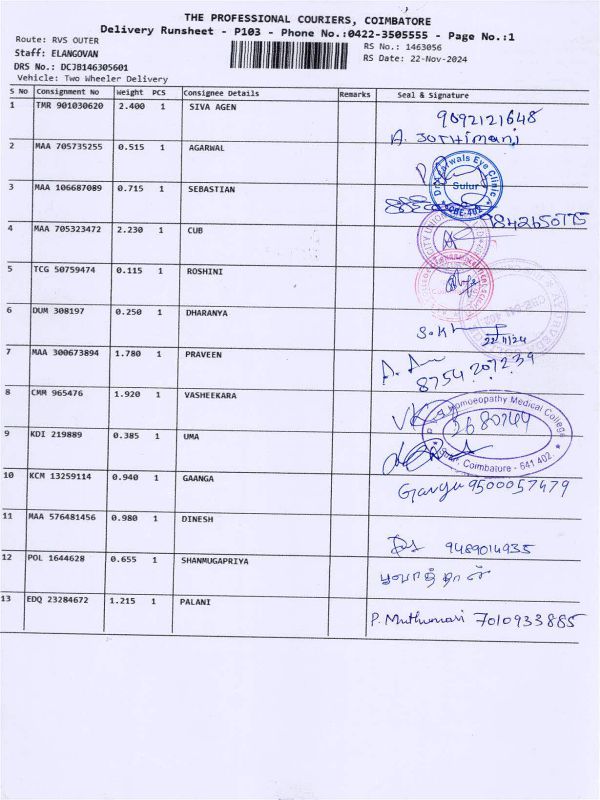 THE PROFESSIONAL COURIERS, COIMBATORE
Delivery Runsheet - P103 - Phone No.:0422-3505555 - Page No.:1
Route: RVS OUTER
RS No.: 1463056
Staff: ELANGOVAN
RS Date: 22-Nov-2024
DRS No.: DCJB146305601
Vehicle: Two Wheeler Delivery
S No Consignment No Weight PCS Consignee Details Remarks Seal & Signature
1 TMR 901030620 2.400 1 SIVA AGEN 9092121648
A. JOTHIMANI
2 MAA 705735255 0.515 1 AGARWAL
Eye Clinic
Sulur
3 MAA 106687089 0.715 1 SEBASTIAN
9842650775
4 MAA 705323472 2.230 1 CUB
5 TCG 50759474 0.115 1 ROSHINI
6 DUM 308197 0.250 1 DHARANYA
22/11/24
7 MAA 300673894 1.780 1 PRAVEEN
8754207239
8 CMM 965476 1.920 1 VASHEEKARA
Homoeopathy Medical College
2680744
9 KDI 219889 0.385 1 UMA
Coimbatore - 641 402.
10 KCM 13259114 0.940 1 GAANGA Ganga 9500057479
11 MAA 576481456 0.980 1 DINESH 9489014935
12 POL 1644628 0.655 1 SHANMUGAPRIYA பூவாத்தாள்
13 EDQ 23284672 1.215 1 PALANI P. Muthumari 7010933885